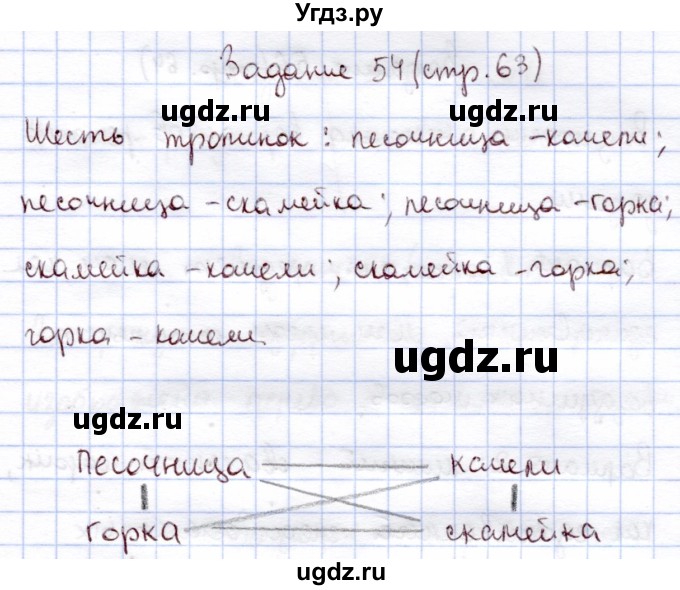 Угдз.ру
Задание 54 (стр. 63)
ugdz.ru ugdz.ru
Шесть тропинок: песочница - качели;
песочница - скамейка; песочница - горка;
скамейка - качели; скамейка - горка;
горка - качели.
ugdz.ru
ugdz.ru
Песочница качели
горка скамейка
ugdz.ru